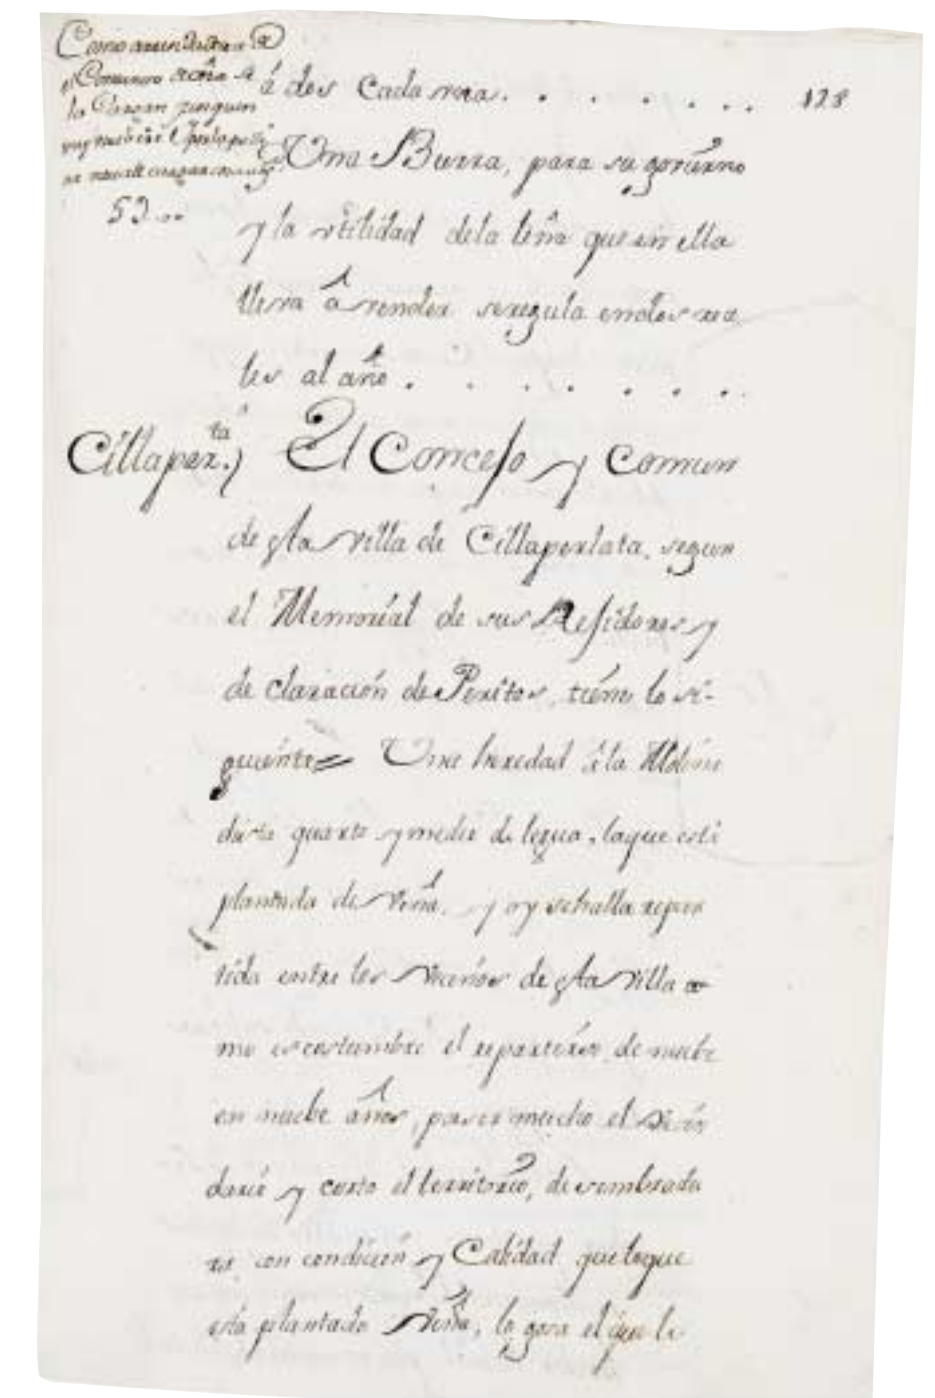 á dos cada una. . . . . . . . 128
Una Burra, para su govierno
y la vtilidad dela leña que en ella
lleva â vender se regula en dos rea
les al año . . . . . . . .
53
Cillaper.ta) El Concejo y Comun
de esta villa de Cillaperlata, segun
el Memorial de sus Rejidores y
de claracion de Peritos, tiene lo si-
guiente = Una heredad â la Molina
dista quarto y medio de legua, la que está
plantada de viña, y oy se halla repar
tida entre los vecinos de esta villa co
mo es costumbre el repartirse de nuebe
en nuebe años, por ser mucho el vecin
dario y corto el territorio, de sembradu
ra con condicion y Calidad que lo que
está plantado viña, lo goza el que le